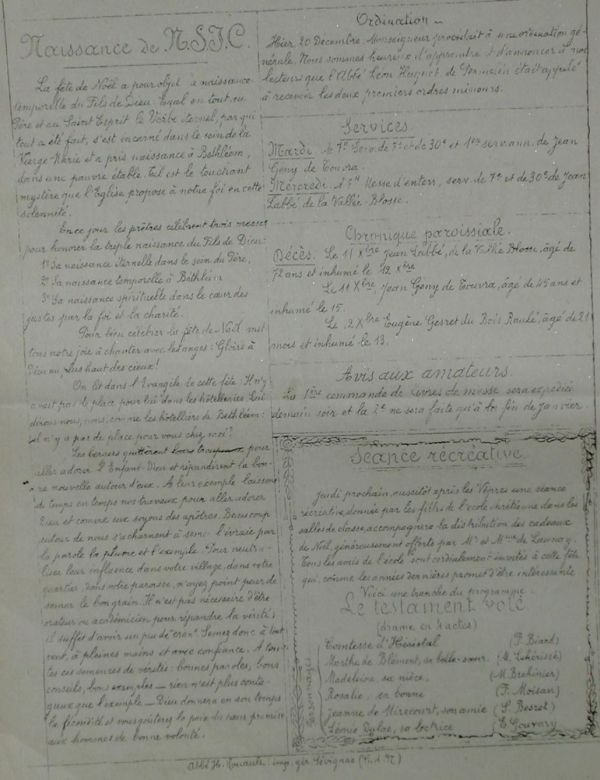 Naissance de N.S.J.C.
La fête de Noël a pour objet la naissance
temporelle du Fils de Dieu. Egal en tout, au
Père et au Saint Esprit le Verbe éternel, par qui
tout a été fait, s'est incarné dans le sein de la
Vierge Marie et a pris naissance à Bethléem,
dans une pauvre étable. Tel est le touchant
mystère que l'Eglise propose à notre foi en cette
solennité.
En ce jour les prêtres célèbrent trois messes
pour honorer la triple naissance du Fils de Dieu:
1º Sa naissance éternelle dans le sein du Père,
2º Sa naissance temporelle à Bethléem
3º Sa naissance spirituelle dans le cœur des
justes par la foi et la charité.
Pour bien célébrer la fête de Noël met
tons notre joie à chanter avec les anges: Gloire à
Dieu au plus haut des cieux!
On lit dans l'Evangile de cette fête: Il n'y
avait pas de place pour lui dans les hôtelleries. Lui
dirons nous, nous, comme les hôteliers de Bethléem:
il n'y a pas de place pour vous chez moi?
Les bergers quittèrent leurs troupeaux, pour
aller adorer l'Enfant-Dieu et répandirent la bon-
ne nouvelle autour d'eux. A leur exemple laissons
de temps en temps nos travaux pour aller adorer
Dieu et comme eux soyons des apôtres. Beaucoup
autour de nous s'acharnent à semer l'ivraie par
la parole la plume et l'exemple. Pour neutra-
liser leur influence dans votre village, dans votre
quartier, dans votre paroisse, n'ayez point peur de
semer le bon grain. Il n'est pas nécessaire d'être
orateur ou académicien pour répandre la vérité;
il suffit d'avoir un peu de cran. Semez donc à tout
vent, à pleines mains et avec confiance. A tou-
tes ces semences de vérités: bonnes paroles, bons
conseils, bons exemples — rien n'est plus conta-
gieux que l'exemple — Dieu donnera en son temps
la fécondité et vous goûterez la paix du cœur promise
aux hommes de bonne volonté.
Ordination —
Hier, 20 Décembre, Monseigneur procédait à une ordination gé
nérale. Nous sommes heureux d'apprendre et d'annoncer à nos
lecteurs que l'Abbé Léon Huguet de était appelé
à recevoir les deux premiers ordres mineurs.
Services
Mardi: le 7e Serv. de 7e et de 30e et 1er serv. ann. de Jean
Geny de Couvra.
Mercredi. A Messe d'enterr, serv. de 7e et de 30e de Jean
Labbé de la Vallée Blosse.
Chronique paroissiale.
Décès. Le 11 Xbre Jean Labbé, de la Vallée Blosse, âgé de
72 ans et inhumé le 12 Xbre
Le 11 Xbre, Jean Geny de Couvra, âgé de 45 ans et
inhumé le 15.
Le 12 Xbre Eugène Gesret du Bois Raulé, âgé de 21
mois et inhumé le 13.
Avis aux amateurs.
La 1ère commande de livres de messe sera expédiée
demain soir et la 2e ne sera faite qu'à la fin de janvier.
Séance récréative
Jeudi prochain, aussitôt après les Vêpres une séance
récréative, donnée par les filles de l'école chrétienne dans les
salles de classe, accompagnera la distribution des cadeaux
de Noël, généreusement offerts par Mr et Mme de Launay.
Tous les amis de l'école sont cordialement invités à cette fête
qui, comme les années dernières promet d'être intéressante
Voici une tranche du programme:
Le testament volé
(drame en 4 actes)
Personnages
Comtesse d'Héristal (F. Biard)
Marthe de Blément, sa belle-sœur. (A. Lehérissé)
Madeleine, sa nièce, (M. Brehinier)
Rosalie, sa bonne (F. Moisan)
Jeanne de Mirecourt, son amie (S. Besret)
Lénie Dylac, sa lectrice (E. Gouvary)
Abbé H. imp. gér. Sévignac (C. d. N.)